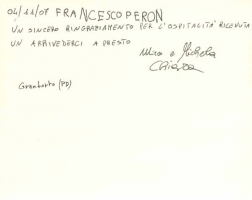 04/11/07 FRANCESCO PERON
UN SINCERO RINGRAZIAMENTO PER L'OSPITALITÀ RICEVUTA
UN ARRIVEDERCI A PRESTO
e Michela
Chiara
Grantorto (PD)